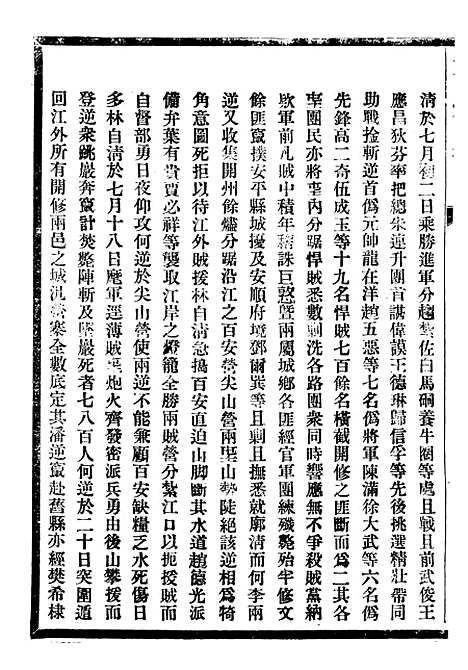 清於七月初二日乘勝進軍分趨紮佐白馬硐養牛圈等處且戰且前武俊王
應昌狄芬率把總朱連升團首諶偉謨王德琳歸信孚等先後挑選精壯帶同
助戰捡斬逆首爲元帥龍在洋趙五惡等七名爲將軍陳滿徐大武等六名爲
先鋒高二奇伍成玉等十九名悍賊七百餘名橫截開修之匪斷而爲二其各
屯團民亦將屯內分踞悍賊悉數剿洗各路團衆同時響應無不爭殺賊黨納
欵軍前凡賊中積年稔誅巨憝曁兩屬城鄉各匪經官軍團練殲斃殆半修文
餘匪竄撲安平縣城擾及安順府境鄧爾巽等且剿且撫悉就廓清而何李兩
逆又收集開州餘燼分踞沿江之百安營尖山營兩山勢陡絕該逆相爲犄
角意圖死拒以待江外賊援林自清急搗百安直迫山脚斷其水道趙德光派
備弁葉有貴賈必祥等襲取江岸之燈籠全勝兩賊營分紮江口以扼援賊而
自督部勇日夜仰攻何逆於尖山營使兩逆不能兼顧百安缺糧乏水死傷日
多林自清於七月十八日麾軍逕薄賊屯炮火齊發密派兵勇由後山攀援而
登逆衆跳巖奔竄計焚斃陣斬及墜巖死者七八百人何逆於二十日突圍遁
回江外所有開修兩邑之城汛營寨全數底定其潘逆竄赴舊縣亦經樊希棣